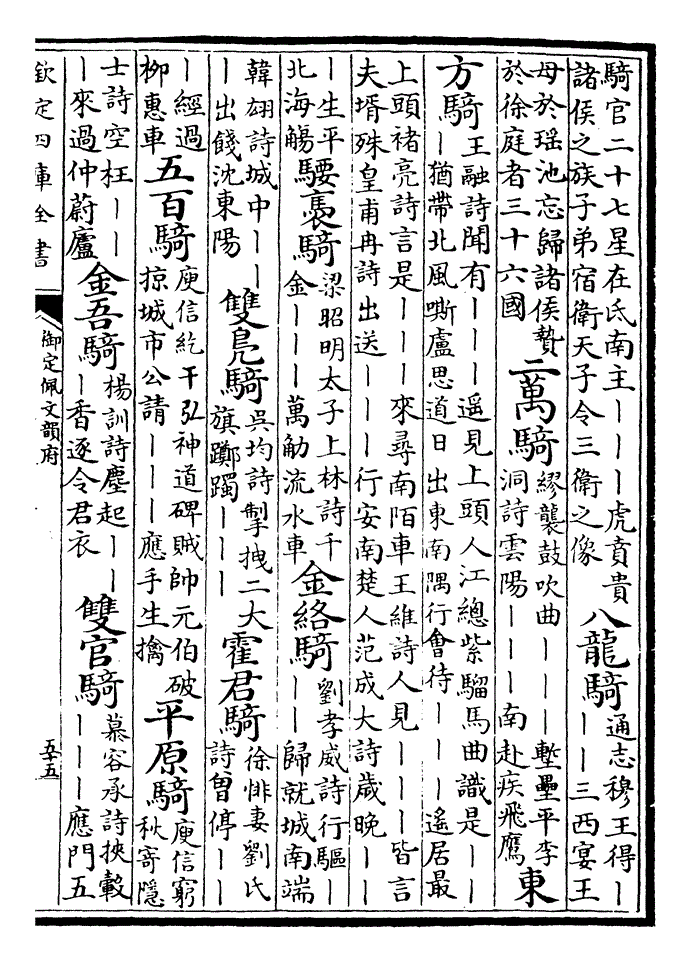 騎官二十七星在氐南主｜｜｜虎賁貴
諸侯之族子弟宿衛天子令三衛之像
八龍騎
通志穆王得｜
｜｜三西宴王
母於瑤池忘歸諸侯贄
於徐庭者三十六國
二萬騎
繆襲鼓吹曲｜｜｜塹壘平李
洞詩雲陽｜｜｜南赴疾飛鷹
東
方騎
王融詩聞有｜｜｜遥見上頭人江總紫騮馬曲識是｜｜
｜猶帶北風嘶盧思道日出東南隅行會待｜｜｜遙居最
上頭褚亮詩言是｜｜｜來尋南陌車王維詩人見｜｜｜皆言
夫壻殊皇甫冉詩出送｜｜｜行安南楚人范成大詩歲晚｜｜
｜生平
北海觴
騕褭騎
梁昭明太子上林詩千
金｜｜｜萬觔流水車
金絡騎
劉孝威詩行驅｜
｜｜歸就城南端
韓翃詩城中｜｜
｜出餞沈東陽
雙鳧騎
吳均詩掣拽二大
旗躑躅｜｜｜
霍君騎
徐悱妻劉氏
詩曾停｜｜
｜經過
柳惠車
五百騎
庾信紇干弘神道碑賊帥元伯破
掠城市公請｜｜｜應手生擒
平原騎
庾信窮
秋寄隱
士詩空枉｜｜
｜來過仲蔚廬
金吾騎
楊訓詩塵起｜｜
｜香逐令君衣
雙官騎
慕容承詩挾轂
｜｜｜應門五
欽定四庫全書
御定佩文韻府
五十五